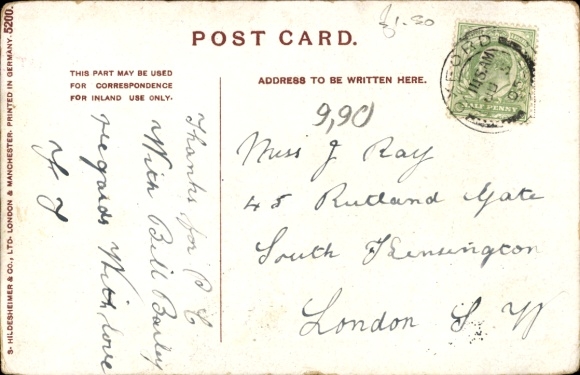 £1.50
POST CARD.
THIS PART MAY BE USED
FOR CORRESPONDENCE
FOR INLAND USE ONLY.
ADDRESS TO BE WRITTEN HERE.
9,90
Thanks for P C
With Bill Bailey
regards With love
Miss J Ray
45 Rutland Gate
South Kensington
London S W
OXFORD
11.15 AM
HALF PENNY
S. HILDESHEIMER & CO., LTD. LONDON & MANCHESTER. PRINTED IN GERMANY. 5200.